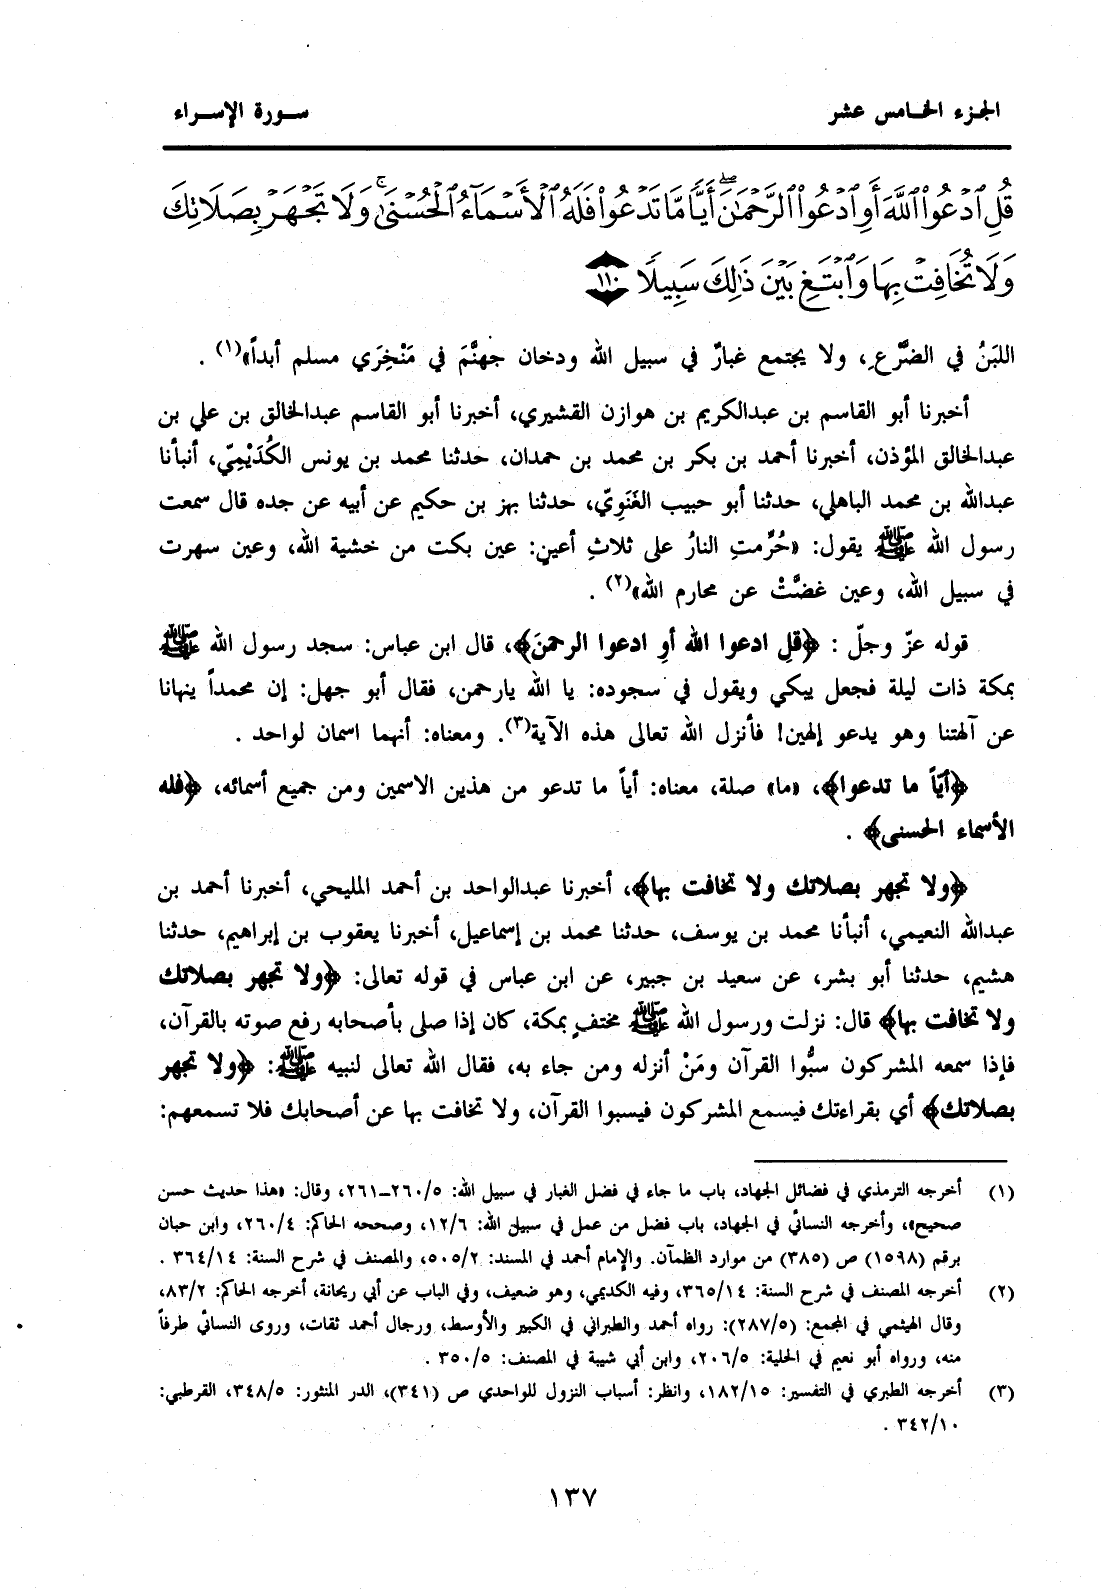 الجزء الخامس عشر
سورة الإسراء
قُلِ ٱدۡعُواْ ٱللَّهَ أَوِ ٱدۡعُواْ ٱلرَّحۡمَٰنَۖ أَيّٗا مَّا تَدۡعُواْ فَلَهُ ٱلۡأَسۡمَآءُ ٱلۡحُسۡنَىٰۚ وَلَا تَجۡهَرۡ بِصَلَاتِكَ
وَلَا تُخَافِتۡ بِهَا وَٱبۡتَغِ بَيۡنَ ذَٰلِكَ سَبِيلٗا ١١٠
اللبَنُ في الضَّرْعِ، ولا يجتمع غبارٌ في سبيل الله ودخان جهنَّمَ في مَنْخِرَي مسلم أبداً»(١) .
أخبرنا أبو القاسم بن عبدالكريم بن هوازن القشيري، أخبرنا أبو القاسم عبدالخالق بن علي بن
عبدالخالق المؤذن، أخبرنا أحمد بن بكر بن محمد بن حمدان، حدثنا محمد بن يونس الكُدَيْمِيّ، أنبأنا
عبدالله بن محمد الباهلي، حدثنا أبو حبيب الغَنَوِيّ، حدثنا بهز بن حكيم عن أبيه عن جده قال سمعت
رسول الله ﷺ يقول: «حُرِّمتِ النارُ على ثلاثِ أعينٍ: عين بكت من خشية الله، وعين سهرت
في سبيل الله، وعين غضَّتْ عن محارم الله»(٢) .
قوله عزّ وجلّ : ﴿قلِ ادعوا الله أوِ ادعوا الرحمنَ﴾، قال ابن عباس: سجد رسول الله ﷺ
بمكة ذات ليلة فجعل يبكي ويقول في سجوده: يا الله يارحمن، فقال أبو جهل: إن محمداً ينهانا
عن آلهتنا وهو يدعو إلهين! فأنزل الله تعالى هذه الآية(٣). ومعناه: أنهما اسمان لواحد .
﴿أيّاً ما تدعوا﴾، «ما» صلة، معناه: أياً ما تدعو من هذين الاسمين ومن جميع أسمائه، ﴿فله
الأسماء الحسنى﴾ .
﴿ولا تجهر بصلاتك ولا تخافت بها﴾، أخبرنا عبدالواحد بن أحمد المليحي، أخبرنا أحمد بن
عبدالله النعيمي، أنبأنا محمد بن يوسف، حدثنا محمد بن إسماعيل، أخبرنا يعقوب بن إبراهيم، حدثنا
هشيم، حدثنا أبو بشر، عن سعيد بن جبير، عن ابن عباس في قوله تعالى: ﴿ولا تجهر بصلاتك
ولا تخافت بها﴾ قال: نزلت ورسول الله ﷺ مختفٍ بمكة، كان إذا صلى بأصحابه رفع صوته بالقرآن،
فإذا سمعه المشركون سبُّوا القرآن ومَنْ أنزله ومن جاء به، فقال الله تعالى لنبيه ﷺ: ﴿ولا تجهر
بصلاتك﴾ أي بقراءتك فيسمع المشركون فيسبوا القرآن، ولا تخافت بها عن أصحابك فلا تسمعهم:
(١) أخرجه الترمذي في فضائل الجهاد، باب ما جاء في فضل الغبار في سبيل الله: ٢٦٠/٥–٢٦١، وقال: «هذا حديث حسن
صحيح»، وأخرجه النسائي في الجهاد، باب فضل من عمل في سبيل الله: ١٢/٦، وصححه الحاكم: ٢٦٠/٤، وابن حبان
برقم (١٥٩٨) ص (٣٨٥) من موارد الظمآن. والإمام أحمد في المسند: ٥٠٥/٢، والمصنف في شرح السنة: ٣٦٤/١٤ .
(٢) أخرجه المصنف في شرح السنة: ٣٦٥/١٤، وفيه الكديمي، وهو ضعيف، وفي الباب عن أبي ريحانة، أخرجه الحاكم: ٨٣/٢،
وقال الهيثمي في المجمع: (٢٨٧/٥): رواه أحمد والطبراني في الكبير والأوسط، ورجال أحمد ثقات، وروى النسائي طرفاً
منه، ورواه أبو نعيم في الحلية: ٢٠٦/٥، وابن أبي شيبة في المصنف: ٣٥٠/٥ .
(٣) أخرجه الطبري في التفسير: ١٨٢/١٥، وانظر: أسباب النزول للواحدي ص (٣٤١)، الدر المنثور: ٣٤٨/٥، القرطبي:
٣٤٢/١٠ .
١٣٧